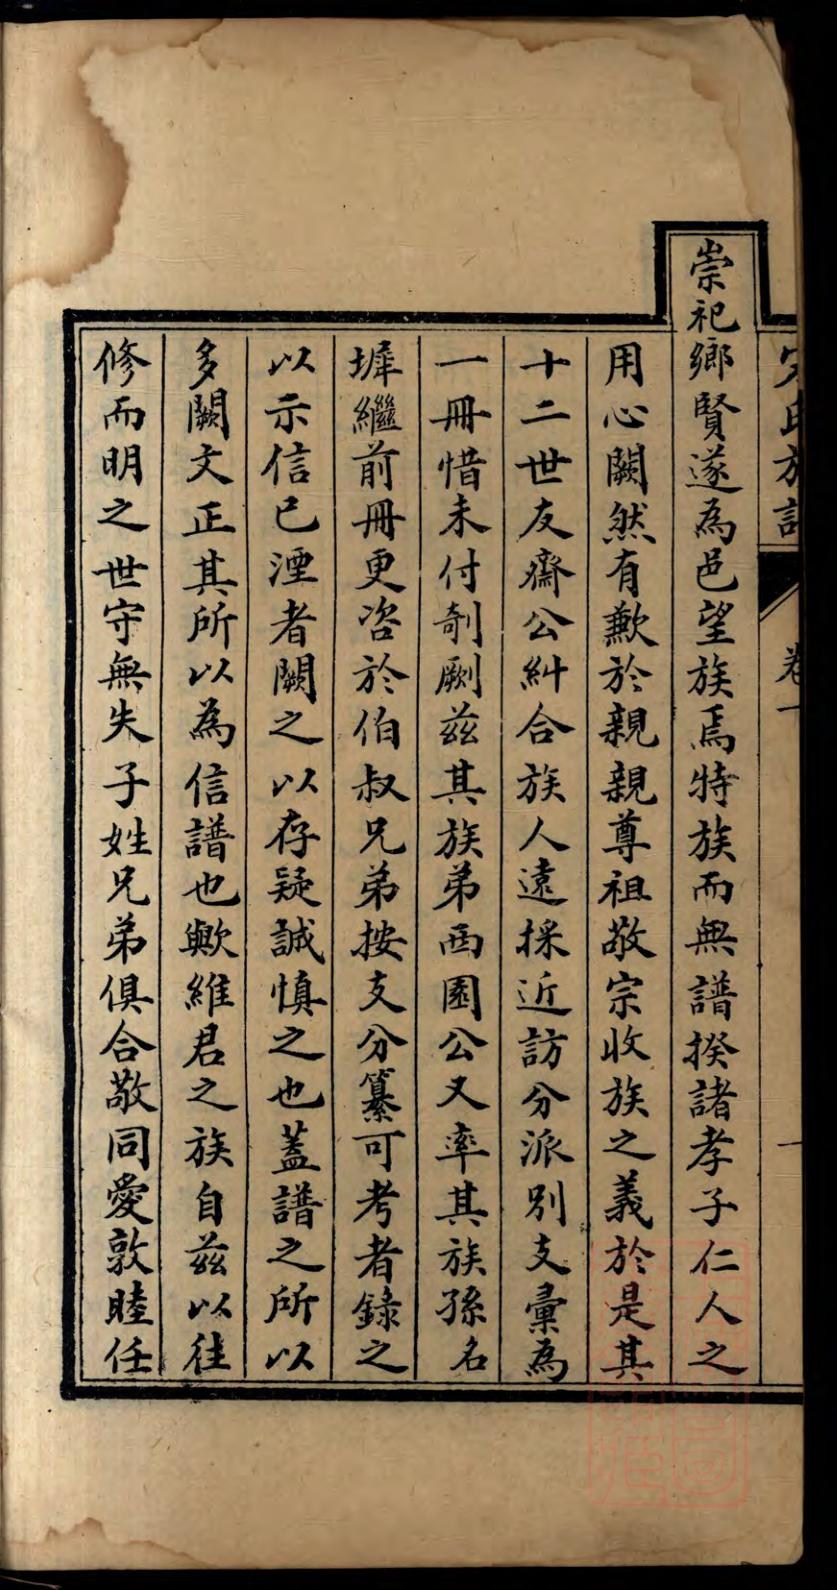 崇祀鄉賢遂為邑望族焉特族而無譜揆諸孝子仁人之
用心闕然有歉於親親尊祖敬宗收族之義於是其
十二世友齋公糾合族人遠採近訪分派別支彙為
一冊惜未付剞劂茲其族弟西園公又率其族孫名
墀繼前冊更咨於伯叔兄弟按支分纂可考者錄之
以示信已湮者闕之以存疑誠慎之也蓋譜之所以
多闕文正其所以為信譜也歟維君之族自茲以往
修而明之世守無失子姓兄弟俱合敬同愛敦睦任
氏族譜
卷一
一